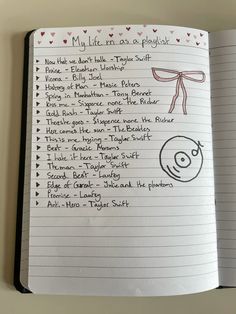 My Life as a playlist
Now that we don't talk - Taylor Swift
Praise - Elevation Worship
Vienna - Billy Joel
History of Man - Maisie Peters
Spring in Manhattan - Tony Bennet
Kiss me - Sixpence none the Richer
Gold Rush - Taylor Swift
There she goes - Sixpence none the Richer
Here comes the sun - The Beatles
This is me trying - Taylor Swift
Best - Gracie Abrams
I hate it here - Taylor Swift
The man - Taylor Swift
Second Best - Laufey
Edge of Great - Julie and the phantoms
Promise - Laufey
Anti-Hero - Taylor Swift